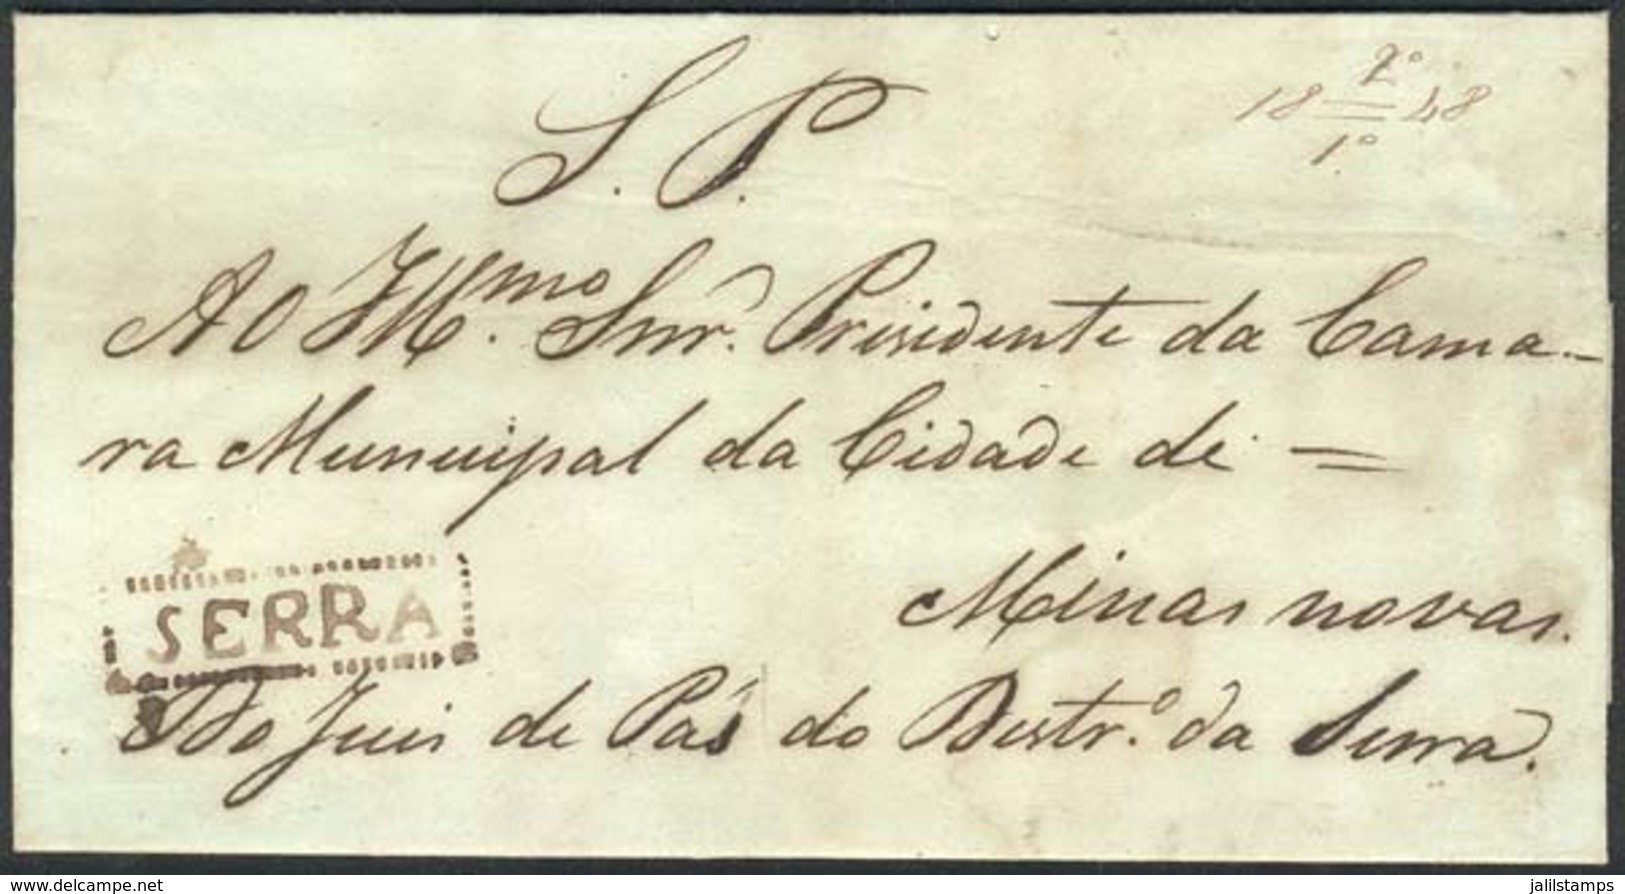 S. P.
2º
18 48
1º
Ao Illmo. Snr. Prisidente da Cama-
ra Municipal da Cidade de =
Minas novas.
SERRA
Do Juis de Pás do Destr.º da Serra.
delcampe.net
jalilstamps